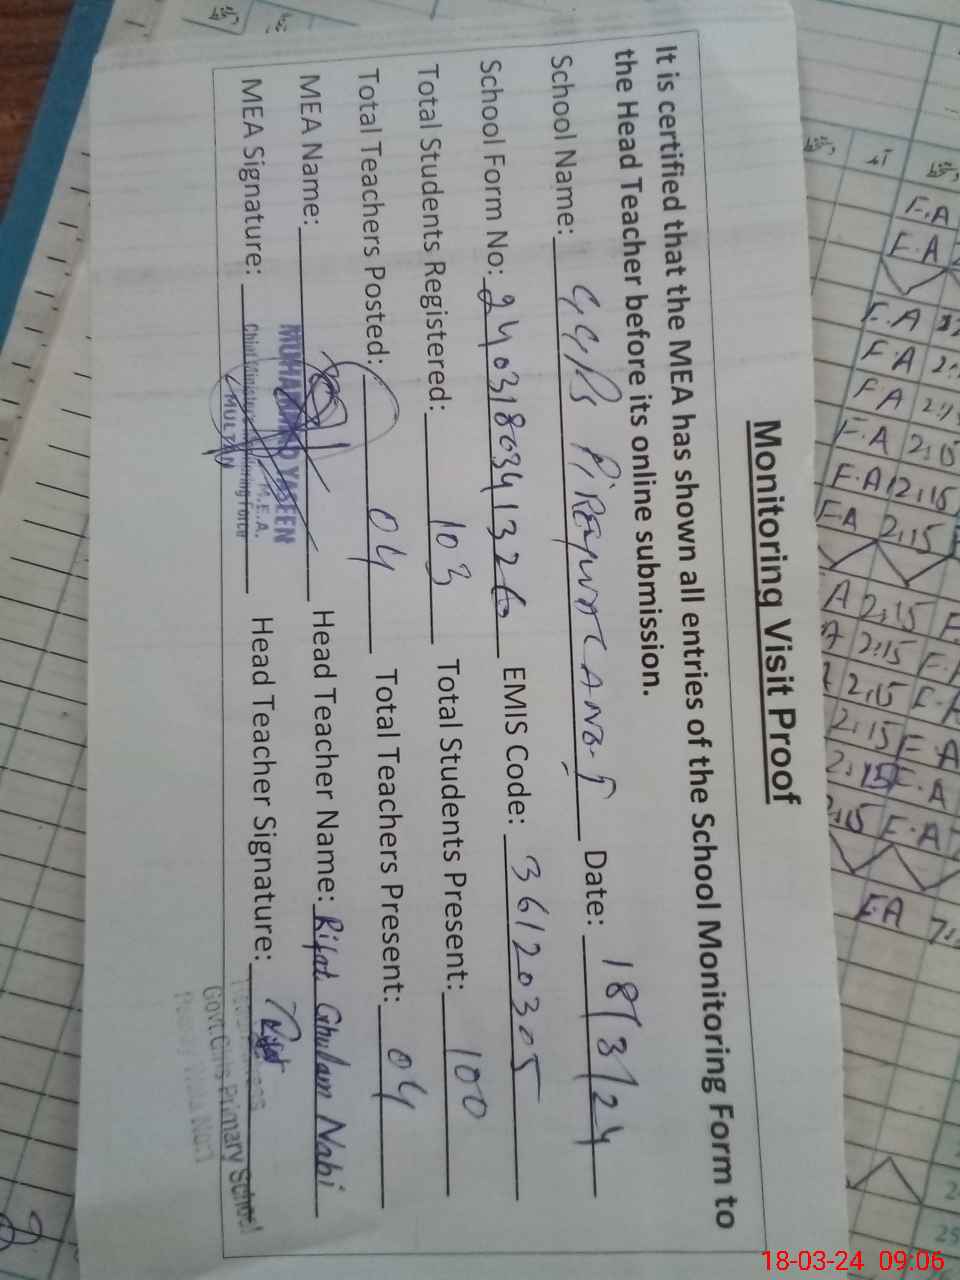 Monitoring Visit Proof
It is certified that the MEA has shown all entries of the School Monitoring Form to
the Head Teacher before its online submission.
School Name: GGPS Date: 18/3/24
School Form No: 24031803413260 EMIS Code: 36120305
Total Students Registered: 103 Total Students Present: 100
Total Teachers Posted: 04 Total Teachers Present: 04
MEA Name: MUHAMMAD YASEEN Head Teacher Name: Rifat Ghulam Nabi
M.E.A.
MEA Signature: Chief Minister's Monitoring Force Head Teacher Signature:
MULTAN
Govt. Girls Primary School
F.A
F.A
F.A
F.A 2:
F A 2:1
F.A 2:15
F.A 2:15
F.A 2:15
A 2:15 F
A 2:15 F.
2:15 F.A
2:15 F A
2:15 F.A
2:15 F.A
F.A
25
18-03-24 09:06